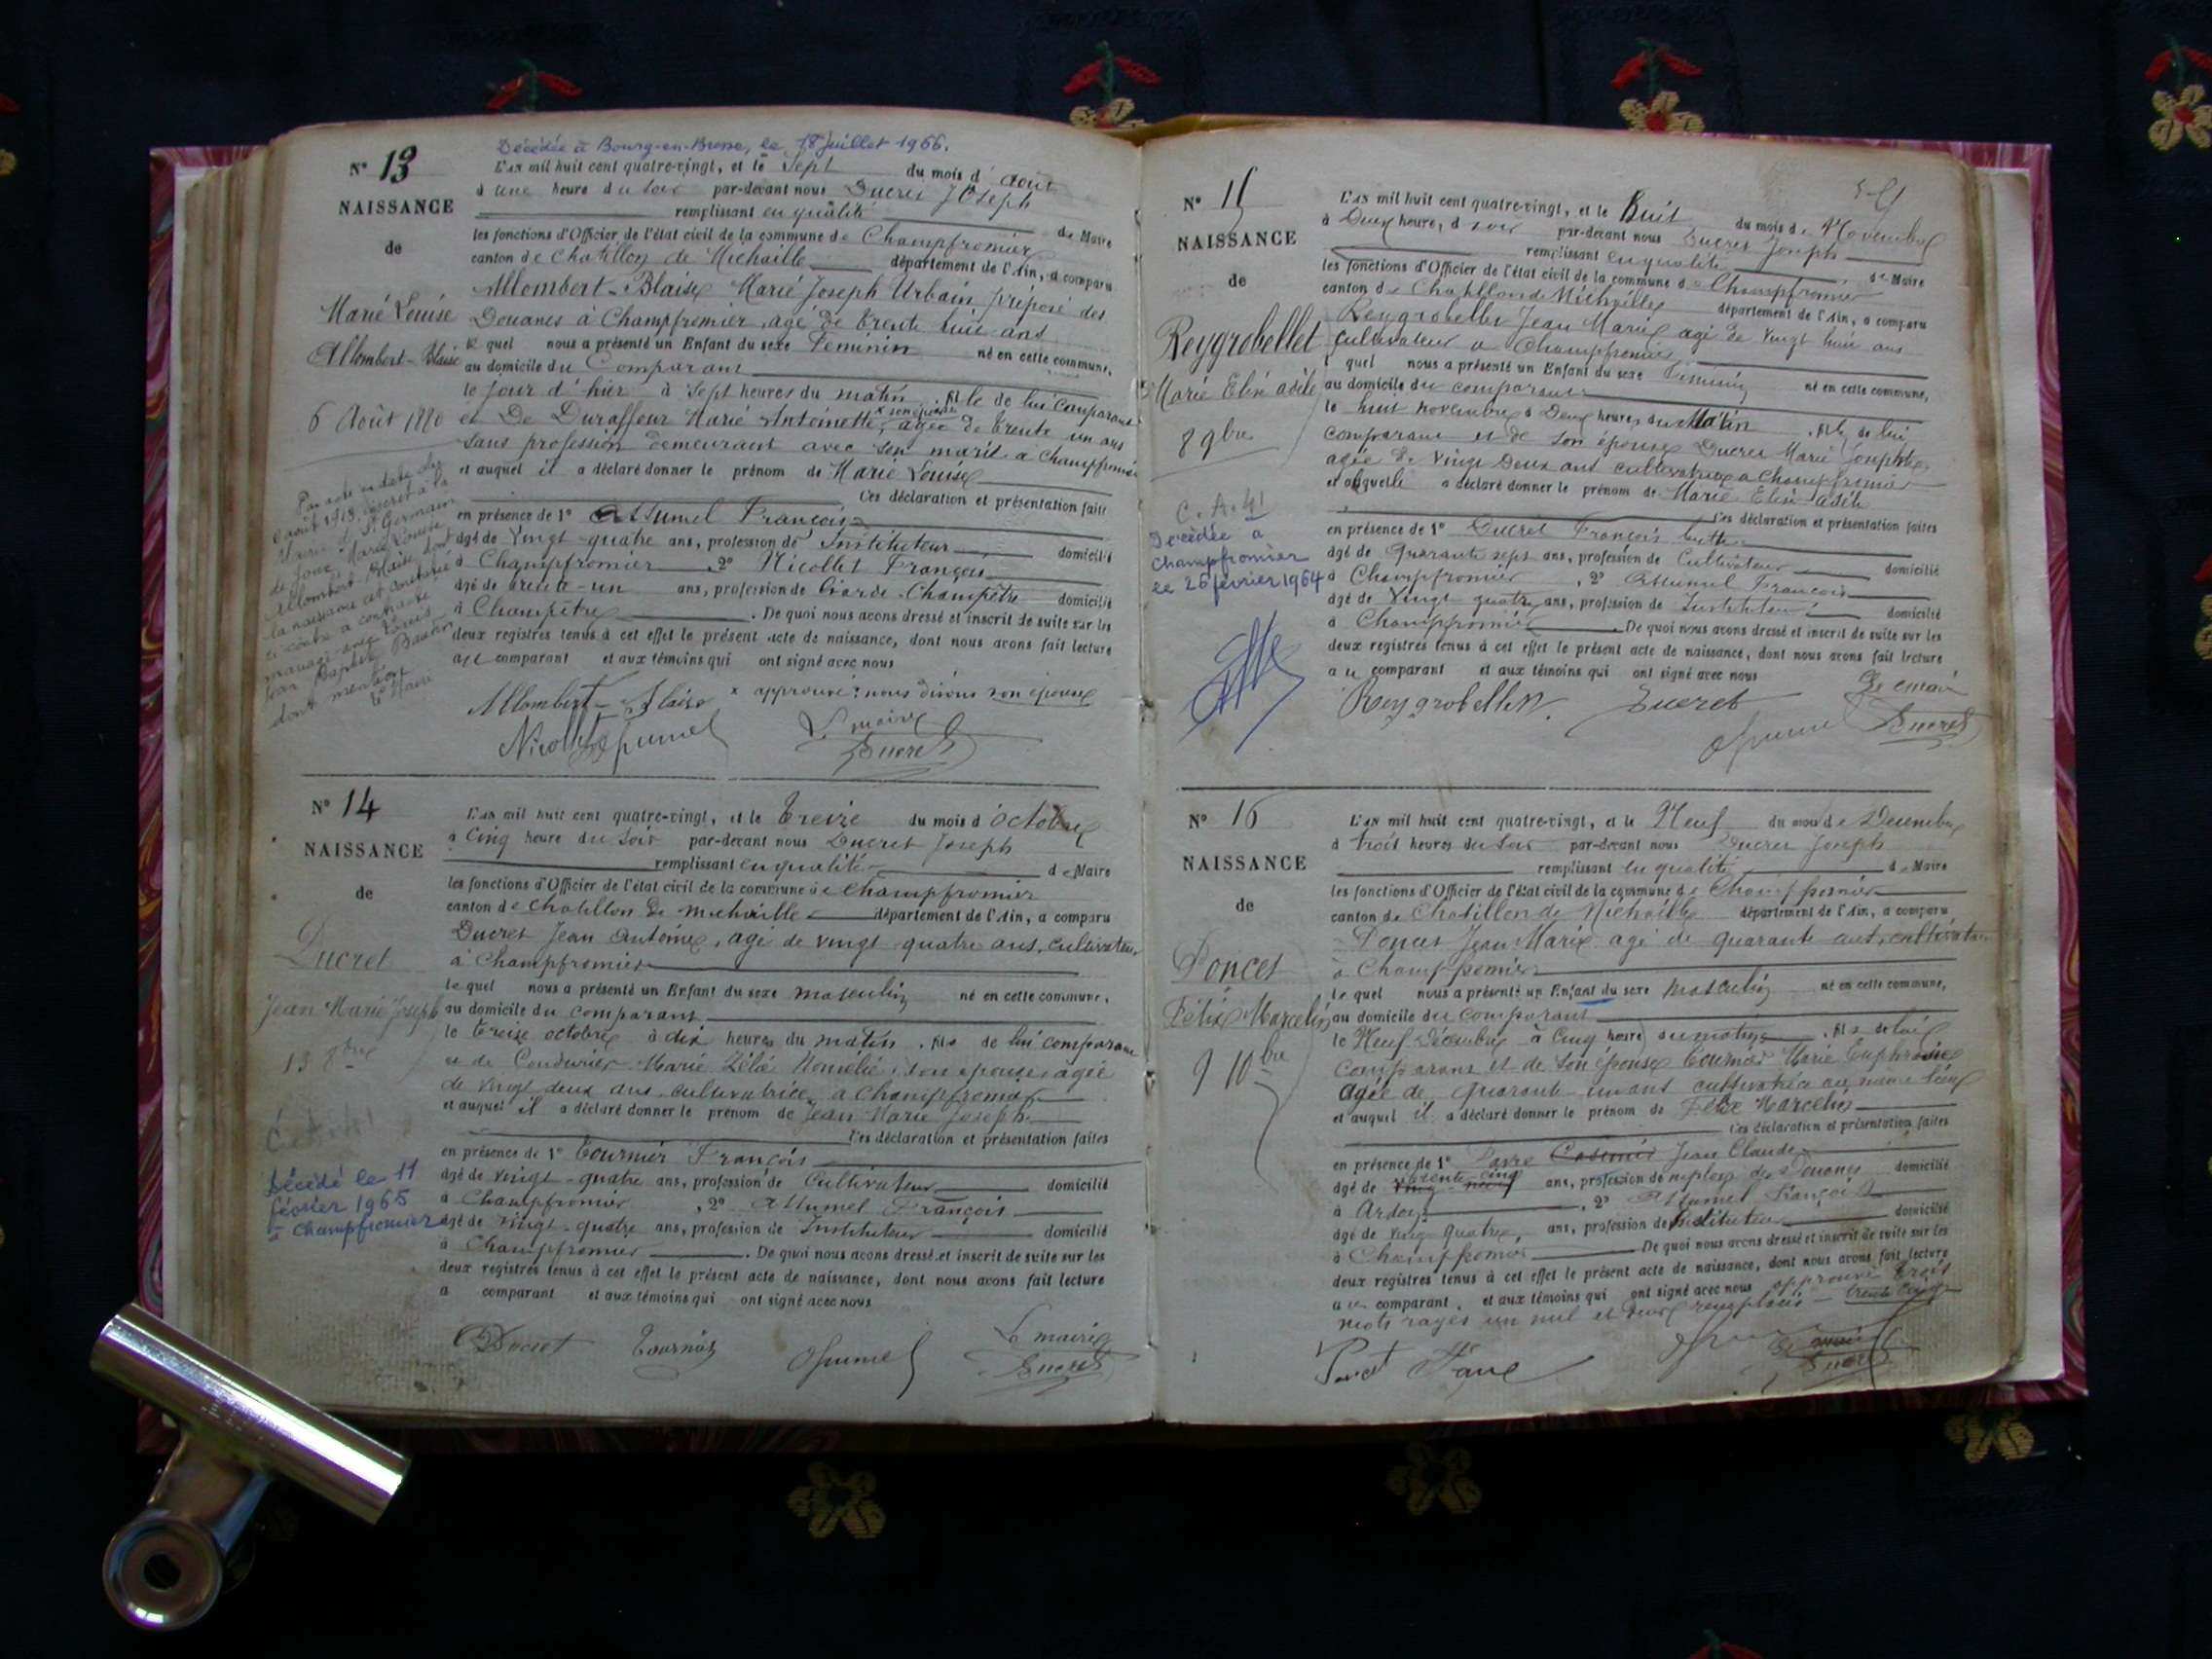 Décédée à Bourg-en-Bresse, le 18 juillet 1966.
N° 13
NAISSANCE
de
Marie Louise
Allombert-Blaise
6 Août 1880
L'an mil huit cent quatre-vingt, et le Sept du mois d'août
à une heure du soir par-devant nous Ducret Joseph
remplissant en qualité de Maire
les fonctions d'Officier de l'état civil de la commune de Champfromier
canton de Chatillon de Michaille département de l'Ain, a comparu
Allombert-Blaise Marie Joseph Urbain préposé des
Douanes à Champfromier, agé de trente huit ans
lequel nous a présenté un Enfant du sexe Feminin né en cette commune,
au domicile du Comparant
le jour d'hier à Sept heures du matin, fille de lui comparant
et De Duraffour Marie Antoinette, x son épouse agée de trente un ans
sans profession demeurant avec son marit a Champfromier
et auquel il a déclaré donner le prénom de Marie Louise
Ces déclaration et présentation faite
en présence de 1° Assumel François
âgé de Vingt-quatre ans, profession de Instituteur domicilié
à Champfromier, 2° Nicollet François
âgé de trente-un ans, profession de Garde-Champêtre domicilié
à Champêtre. De quoi nous avons dressé et inscrit de suite sur les
deux registres tenus à cet effet le présent acte de naissance, dont nous avons fait lecture
au comparant et aux témoins qui ont signé avec nous
x approuvé: nous disons son épouse
Allombert-Blaise
Nicollet Assumel Le maire
Ducret
Par acte en date du
août 1913, inscrit à la
Mairie de St Germain
de Joux, Marie Louise
Allombert-Blaise dont
la naissance est constatée
ci-contre a contracté
mariage avec Louis
Jean Baptiste
dont mention
Le Maire
N° 14
NAISSANCE
de
Ducret
Jean Marie Joseph
13 8bre
Décédé le 11
février 1965
à Champfromier
L'an mil huit cent quatre-vingt, et le treize du mois d'octobre
à Cinq heure du soir par-devant nous Ducret Joseph
remplissant en qualité de Maire
les fonctions d'Officier de l'état civil de la commune de Champfromier
canton de Chatillon de Michaille département de l'Ain, a comparu
Ducret Jean Antoine, agé de vingt quatre ans, cultivateur
à Champfromier
lequel nous a présenté un Enfant du sexe masculin né en cette commune,
au domicile du comparant
le treize octobre à dix heures du matin, fils de lui comparant
et de Coudurier Marie Zélie son épouse, agée
de vingt deux ans cultivatrice a Champfromier
et auquel il a déclaré donner le prénom de Jean Marie Joseph
Ces déclaration et présentation faites
en présence de 1° Tournier François
âgé de vingt-quatre ans, profession de Cultivateur domicilié
à Champfromier, 2° Assumel François
âgé de vingt-quatre ans, profession de Instituteur domicilié
à Champfromier. De quoi nous avons dressé et inscrit de suite sur les
deux registres tenus à cet effet le présent acte de naissance, dont nous avons fait lecture
a comparant et aux témoins qui ont signé avec nous
Ducret Tournier Assumel Le maire
Ducret
N° 15
NAISSANCE
de
Reygrobellet
Marie Elise adèle
8 9bre
C. A. 41
Décédée à
Champfromier
le 26 février 1964
L'an mil huit cent quatre-vingt, et le huit du mois de Novembre
à Deux heure, d soir par-devant nous Ducret Joseph
remplissant en qualité de Maire
les fonctions d'Officier de l'état civil de la commune de Champfromier
canton de Chatillon de Michaille département de l'Ain, a comparu
Reygrobellet Jean Marie agé de vingt huit ans
cultivateur a Champfromier
lequel nous a présenté un Enfant du sexe Féminin né en cette commune,
au domicile du comparant
le huit novembre à Deux heures du Matin, fille de lui
comparant et de son épouse Ducret Marie Josephte
agée de vingt Deux ans cultivatrice a Champfromier
et auquel a déclaré donner le prénom de Marie Elise adèle
Ces déclaration et présentation faites
en présence de 1° Ducret François
âgé de Quarante sept ans, profession de Cultivateur domicilié
à Champfromier, 2° Assumel François
âgé de Vingt quatre ans, profession de Instituteur domicilié
à Champfromier. De quoi nous avons dressé et inscrit de suite sur les
deux registres tenus à cet effet le présent acte de naissance, dont nous avons fait lecture
au comparant et aux témoins qui ont signé avec nous
Reygrobellet Ducret Le maire
Assumel Ducret
N° 16
NAISSANCE
de
Poncet
Félix Marcelin
9 10bre
L'an mil huit cent quatre-vingt, et le Neuf du mois de Décembre
à trois heures du soir par-devant nous Ducret Joseph
remplissant en qualité de Maire
les fonctions d'Officier de l'état civil de la commune de Champfromier
canton de Chatillon de Michaille département de l'Ain, a comparu
Poncet Jean Marie agé de quarante ans, cultivateur
à Champfromier
lequel nous a présenté un Enfant du sexe masculin né en cette commune,
au domicile du comparant
le Neuf Décembre à Cinq heures du matin, fils de lui
comparant et de son épouse Tournier Marie Euphrosine
agée de quarante un ans cultivatrice au même lieu
et auquel il a déclaré donner le prénom de Félix Marcelin
Ces déclaration et présentation faites
en présence de 1° Favre Casimir Jean Claude
âgé de vingt-neuf trente-cinq ans, profession de employé des Douanes domicilié
à, 2° Assumel François
âgé de vingt quatre ans, profession de Instituteur domicilié
à Champfromier. De quoi nous avons dressé et inscrit de suite sur les
deux registres tenus à cet effet le présent acte de naissance, dont nous avons fait lecture
au comparant, et aux témoins qui ont signé avec nous approuvé trois
mots rayés un nul et deux remplacés trente cinq
Poncet Favre Assumel Le maire
Ducret